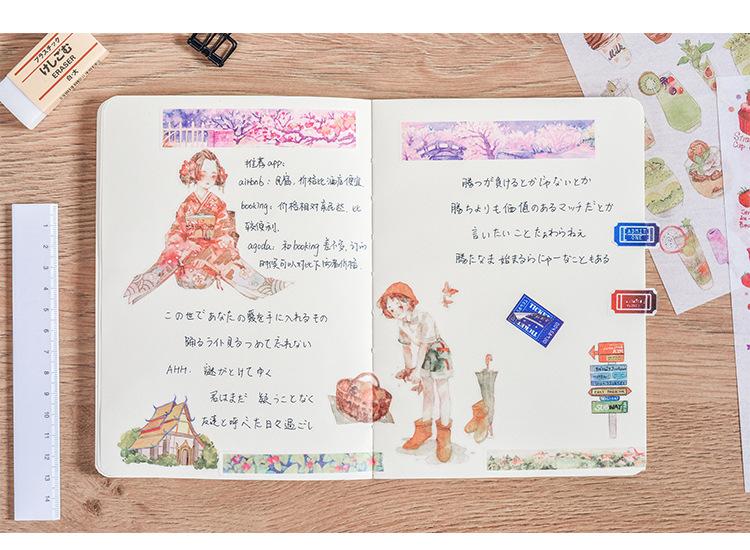 プラスチック
けしごむ
ERASER
白・大
推荐app:
airbnb：民宿，价格比酒店便宜
booking：价格相对亲民些，比
较便利.
agoda：和booking差不多，订的
时候可以对比下两者价格.
この世であなたの愛を手に入れるもの
踊るライト見るつめて忘れない
AHH. 謎がとけてゆく
君はまだ 疑うことなく
友達と呼べた日々過ごし
勝つが負けるとかじゃないとか
勝ちよりも価値のあるマッチだとか
言いたいことたぁわらねえ
勝たなま 始まるらにゃーなこともある
ADMIT
ONE
TICKET
SUBWAY
Milk
1
2
3
4
5
6
7
8
9
10
11
12
13
14